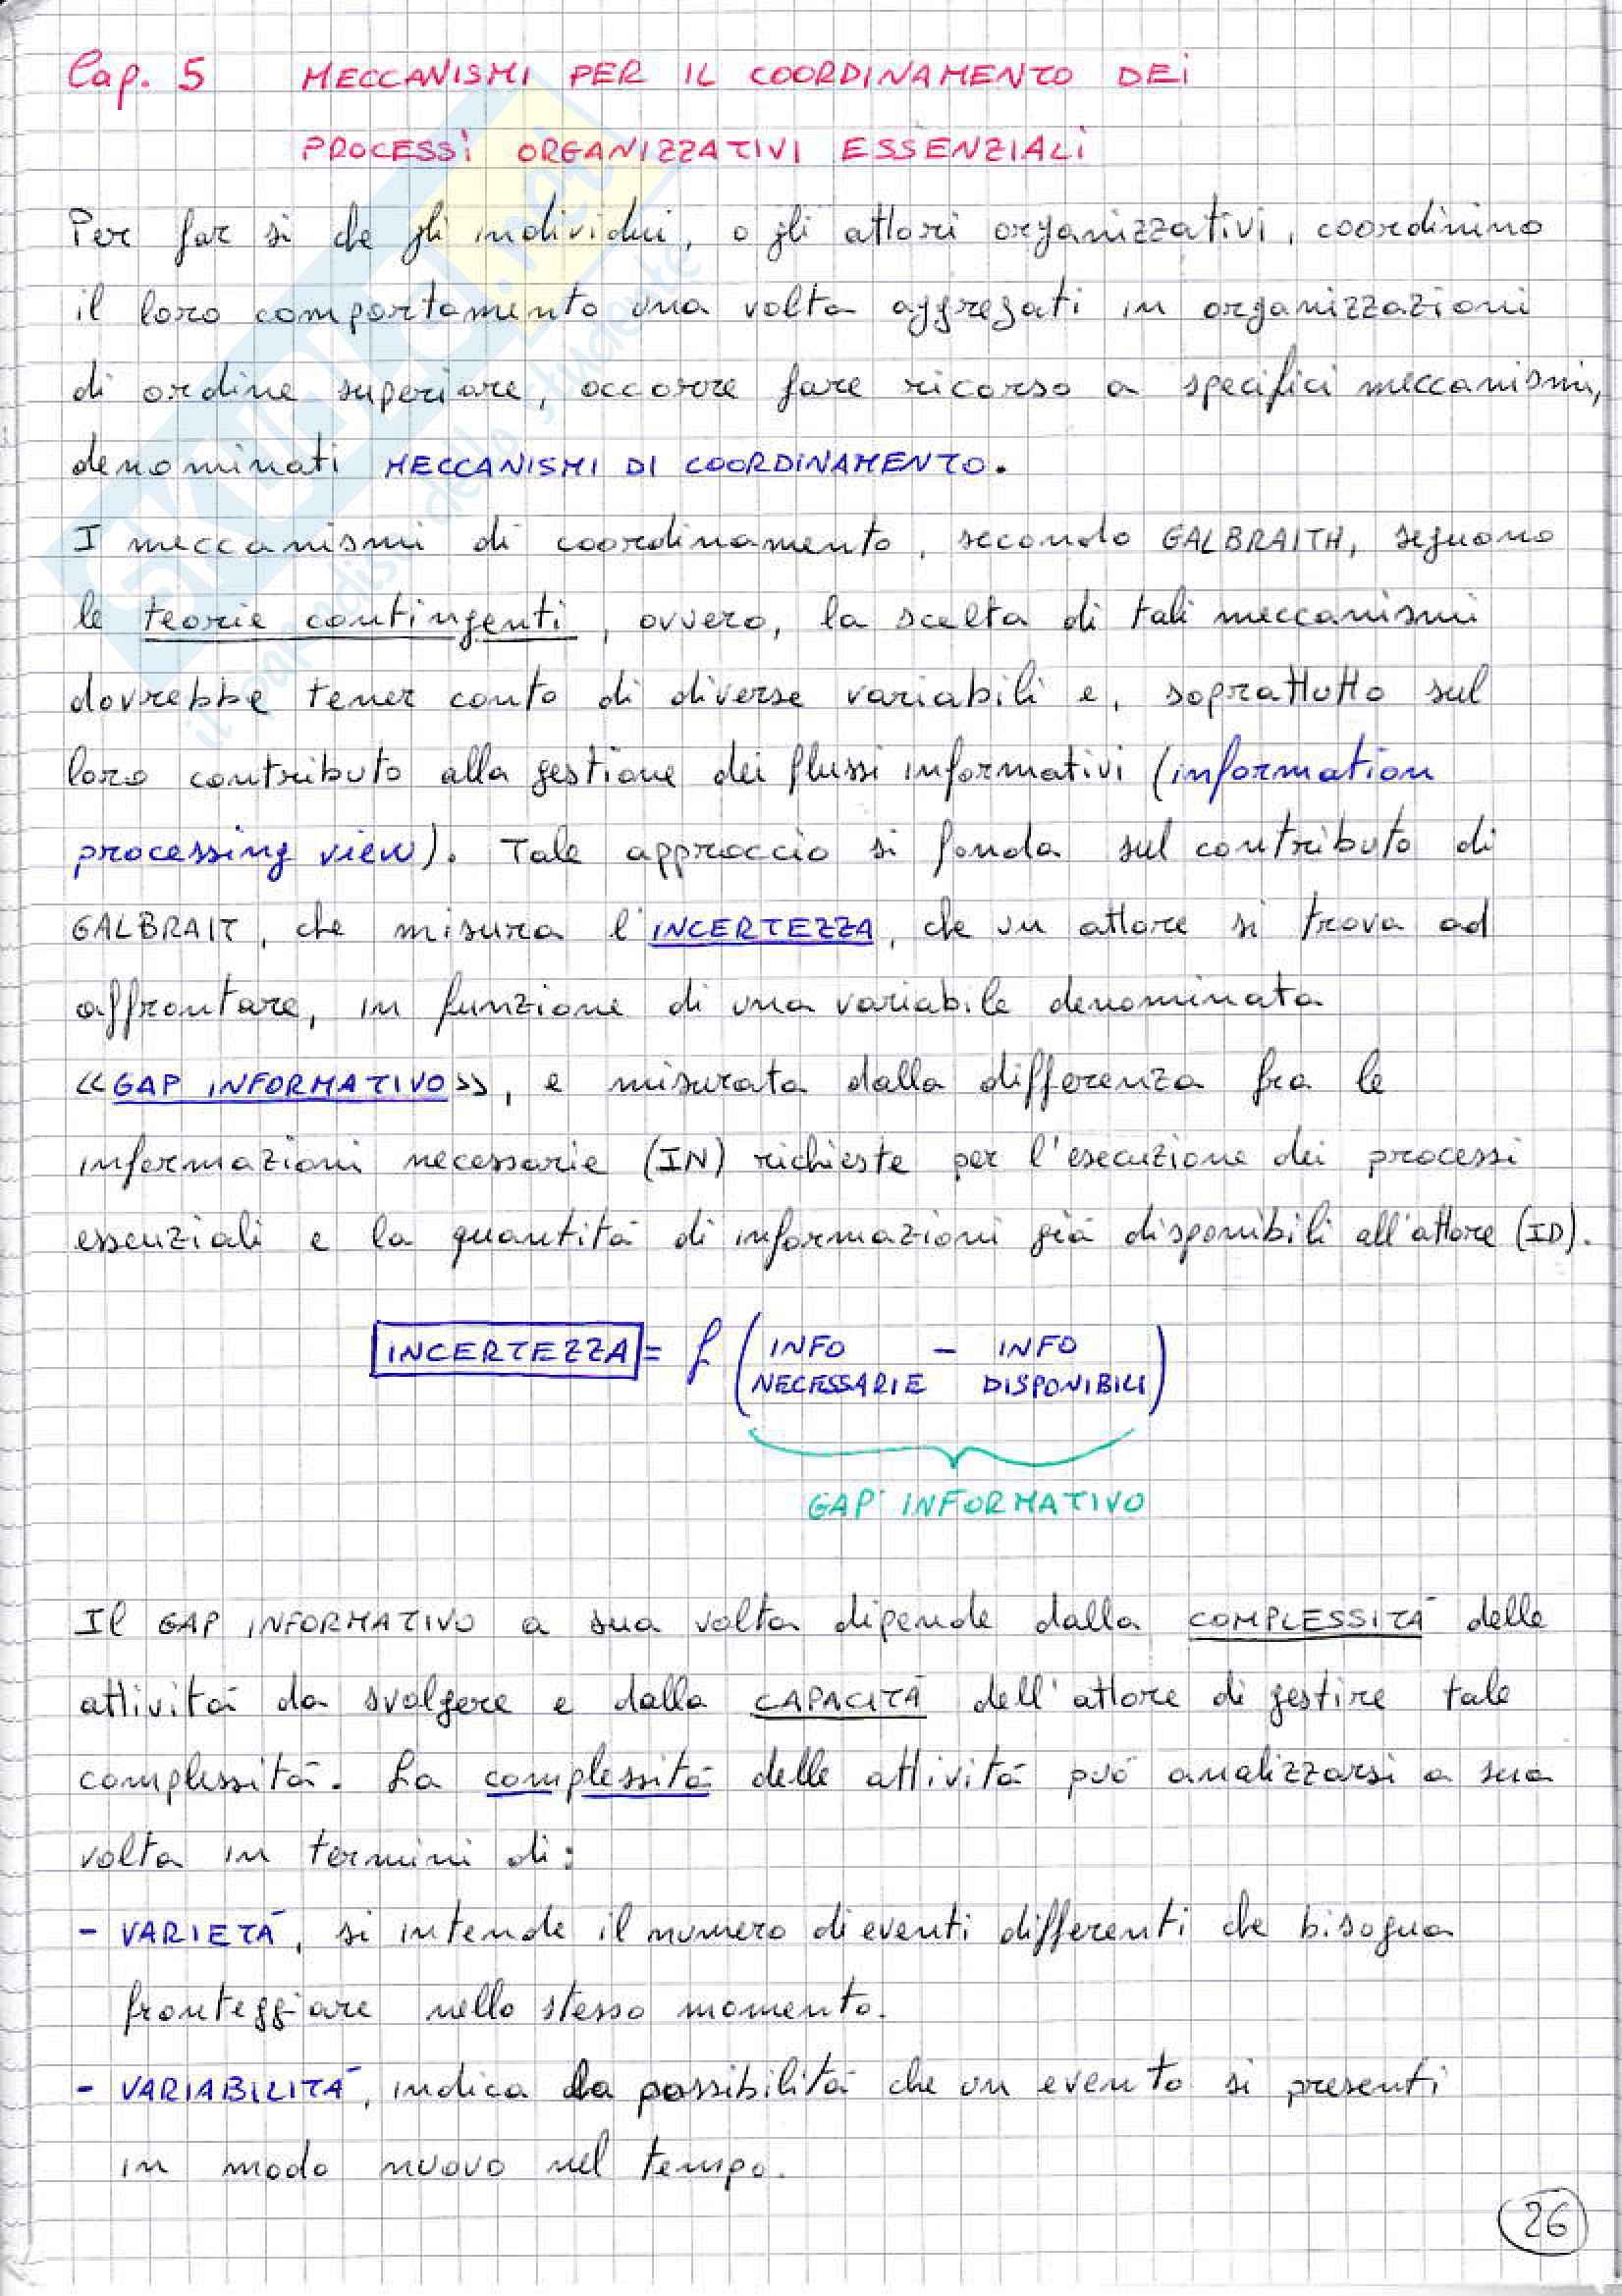 Cap. 5 MECCANISMI PER IL COORDINAMENTO DEI
PROCESSI ORGANIZZATIVI ESSENZIALI
Per far si che gli individui, o gli attori organizzativi, coordinino
il loro comportamento una volta aggregati in organizzazioni
di ordine superiore, occorre fare ricorso a specifici meccanismi,
denominati MECCANISMI DI COORDINAMENTO.
I meccanismi di coordinamento, secondo GALBRAITH, seguono
le teorie contingenti, ovvero, la scelta di tali meccanismi
dovrebbe tener conto di diverse variabili e, soprattutto sul
loro contributo alla gestione dei flussi informativi (information
processing view). Tale approccio si fonda sul contributo di
GALBRAIT, che misura l'INCERTEZZA, che un attore si trova ad
affrontare, in funzione di una variabile denominata
«GAP INFORMATIVO», e misurata dalla differenza fra le
informazioni necessarie (IN) richieste per l'esecuzione dei processi
essenziali e la quantità di informazioni già disponibili all'attore (ID).
INCERTEZZA = f ( INFO NECESSARIE - INFO DISPONIBILI )
GAP INFORMATIVO
Il GAP INFORMATIVO a sua volta dipende dalla COMPLESSITÀ delle
attività da svolgere e dalla CAPACITÀ dell'attore di gestire tale
complessità. La complessità delle attività può analizzarsi a sua
volta in termini di:
- VARIETÀ, si intende il numero di eventi differenti che bisogna
fronteggiare nello stesso momento.
- VARIABILITÀ, indica la possibilità che un evento si presenti
in modo nuovo nel tempo.
26
SKUOLA.net
il paradiso dello studente